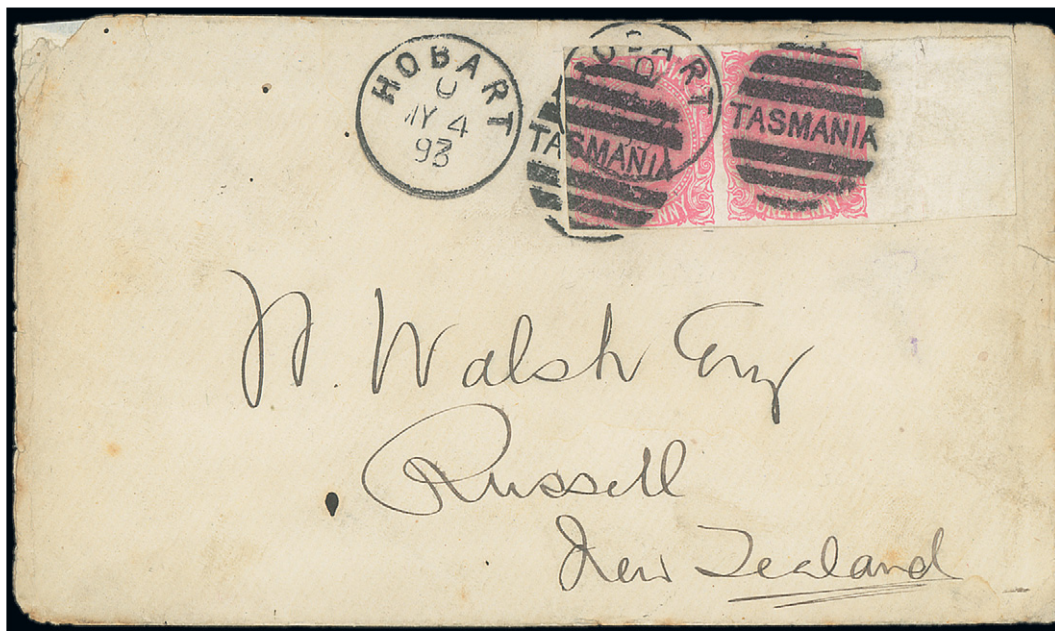 HOBART
MY 4
93
HOBART
TASMANIA
TASMANIA
PENNY
ONE PENNY
W. Walsh Esq
Russell
New Zealand